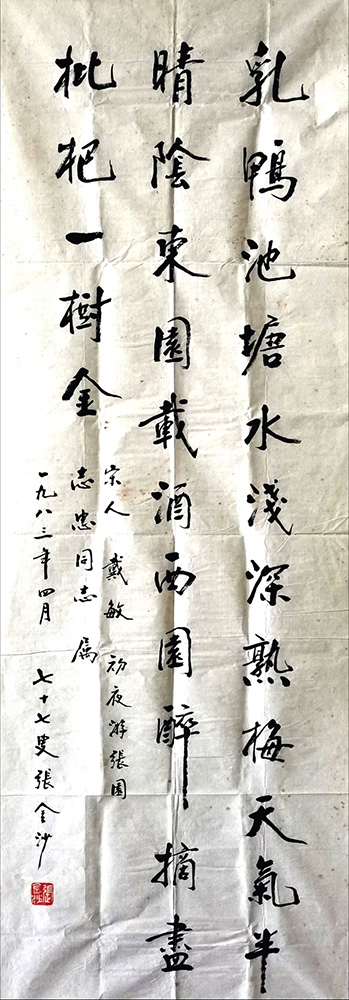 乳鴨池塘水淺深熟梅天氣半
晴陰東園載酒西園醉摘盡
枇杷一樹金
宗人 戴敏 初夜游張園
志忠同志属
一九八三年四月 七十七叟張金沙